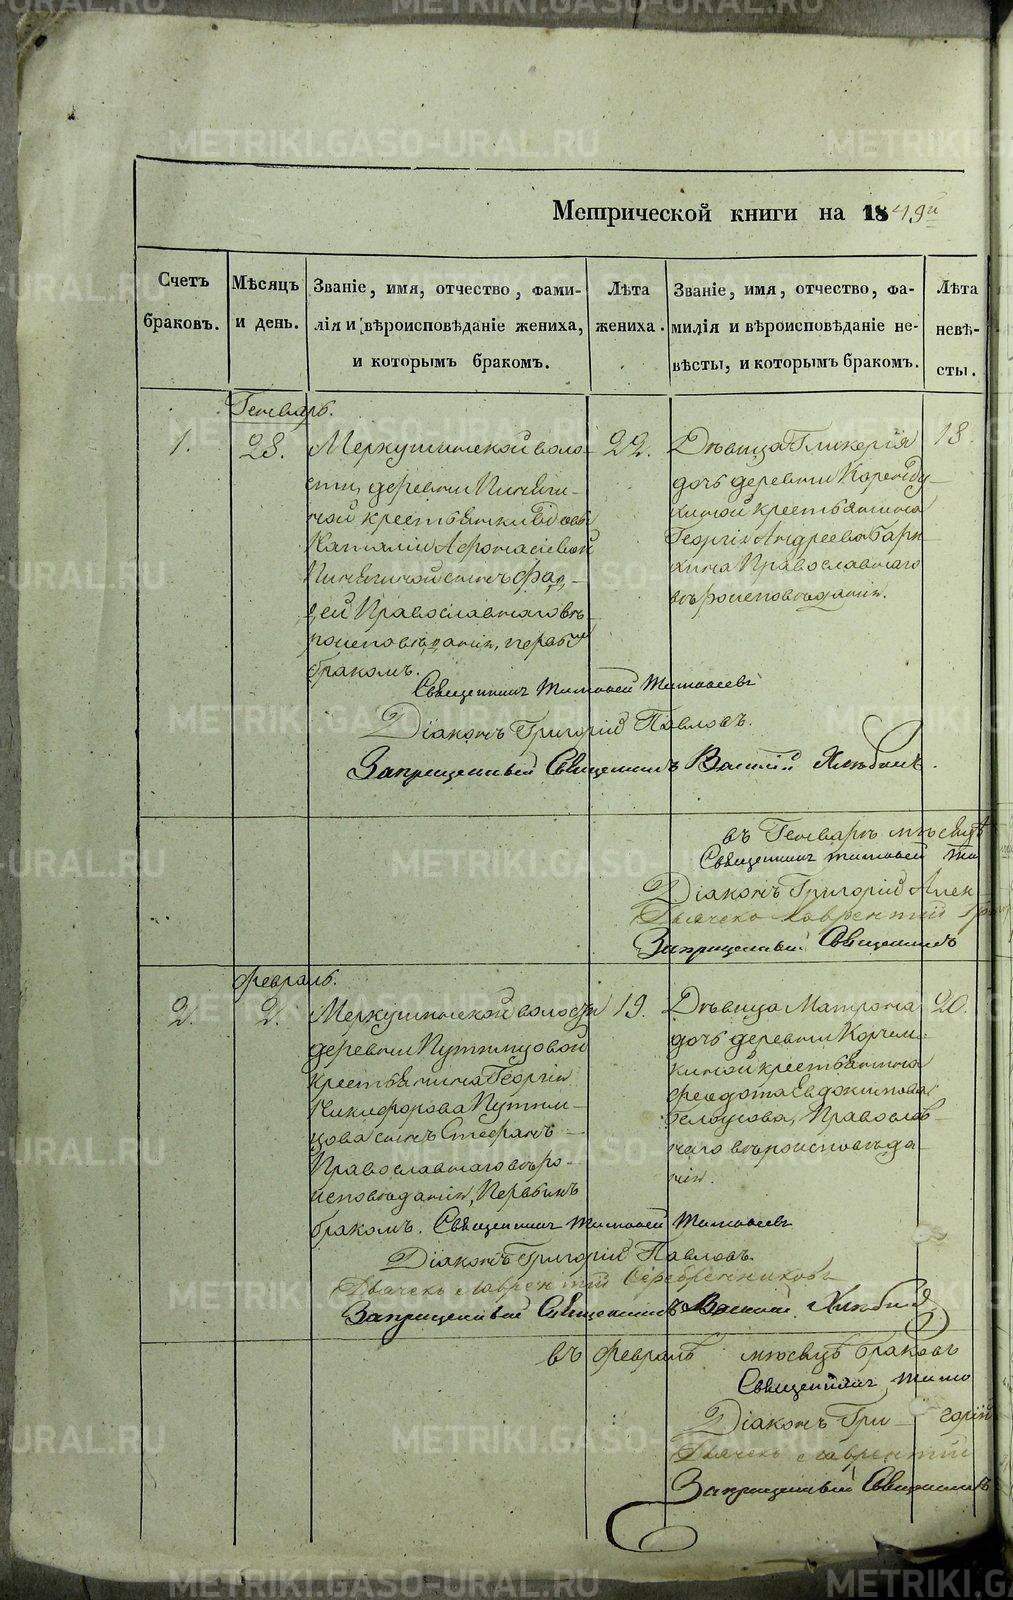 Метрической книги на 1849й
Счетъ браковъ.
Мѣсяцъ и день.
Званіе, имя, отчество, фами-
лія и вѣроисповѣданіе жениха,
и которымъ бракомъ.
Лѣта жениха.
Званіе, имя, отчество, фа-
милія и вѣроисповѣданіе не-
вѣсты, и которымъ бракомъ.
Лѣта невѣ-
сты.
Генварь.
1.
28.
Меркушинской воло
сти, деревни
ной крестьянки вдовы
Наталіи Афонасіевой
сынъ Фад
дей Православнаго вѣ
роисповѣданія, первымъ
бракомъ.
22.
Дѣвица Гликерія
дочь деревни
киной крестьянина
Георгія Андреева
Православнаго
вѣроисповѣданія.
18.
Священникъ Тимофей Тимофеевъ
Діаконъ Григорій Павловъ.
Запрещенный Священникъ Василій Хлѣбинъ.
въ Генварѣ мѣсяцѣ
Священникъ Тимофей Ти
Діаконъ Григорій
Дьячекъ Лаврентій
Запрещенный Священникъ
Февраль.
2.
2.
Меркушинской волости
деревни Путимцовой
крестьянина Георгія
Никифорова Путим
цова сынъ Стефанъ
Православнаго вѣро-
исповѣданія, Первымъ
бракомъ.
19.
Дѣвица Матрона
дочь деревни Корчем
киной крестьянина
Феодота Евдокимова
Белоусова, Православ
наго вѣроисповѣда
нія.
20.
Священникъ Тимофей Тимофеевъ
Діаконъ Григорій Павловъ.
Дьячекъ Лаврентій Серебренниковъ
Запрещенный Священникъ Василій Хлѣбинъ
въ Февралѣ мѣсяцѣ браковъ
Священникъ Тимо
Діаконъ Григорій
Дьячекъ Лаврентій
Запрещенный Священникъ
METRIKI.GASO-URAL.RU